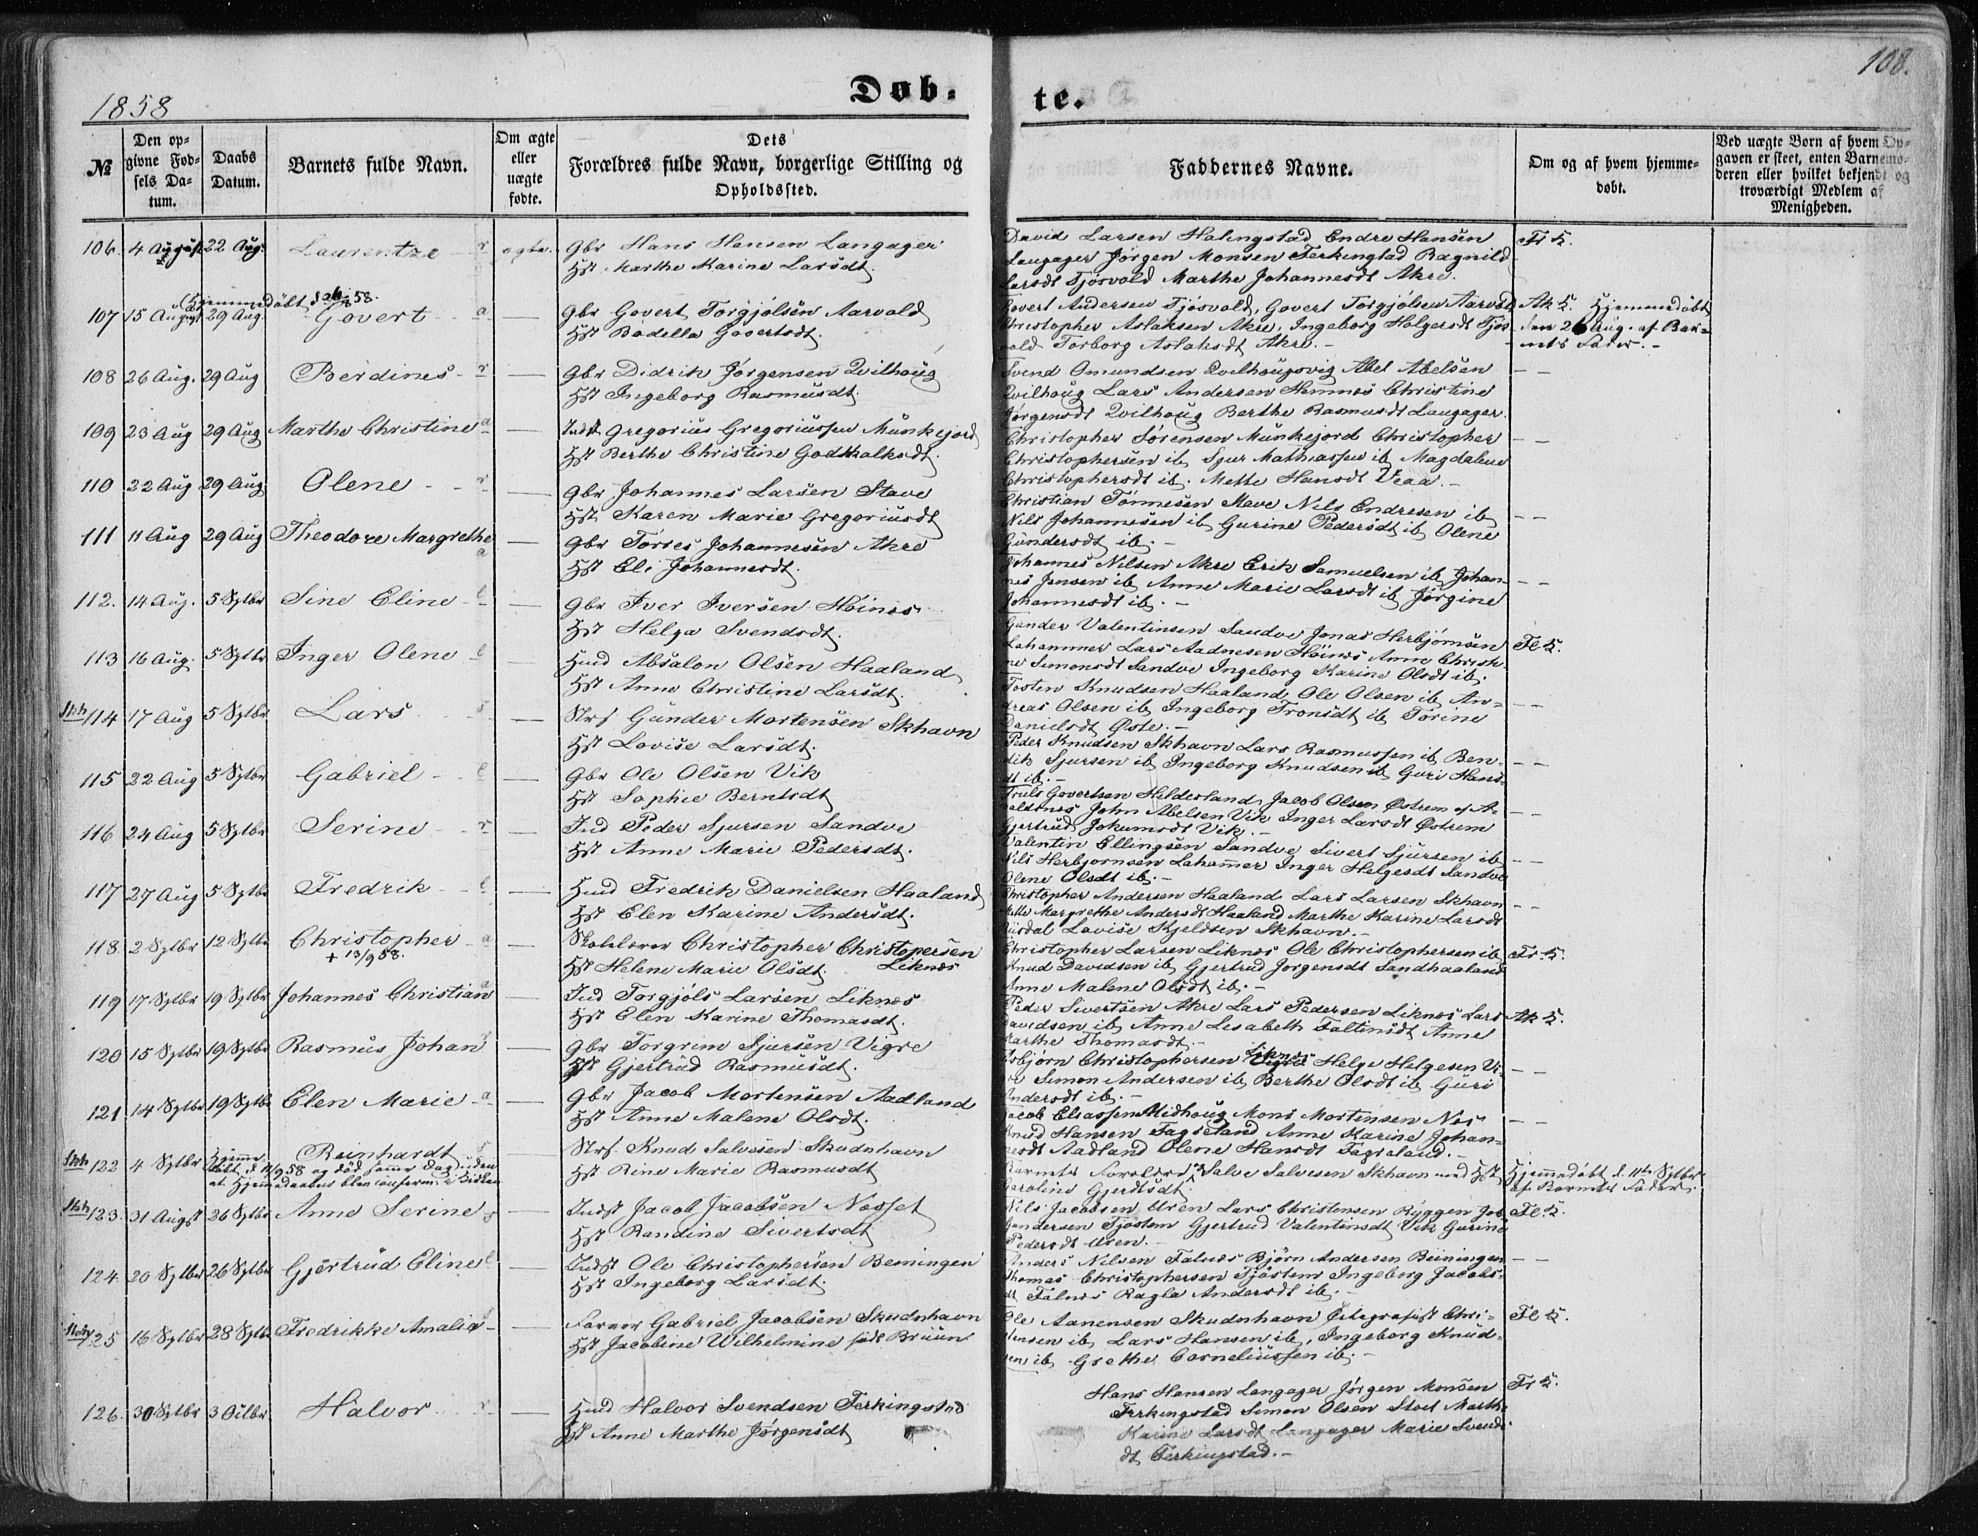 1858
Døb-
te.
108.
№
Den op-
givne Fød-
sels Da-
tum.
Daabs
Datum.
Barnets fulde Navn.
Om ægte
eller
uægte
fødte.
Dets
Forældres fulde Navn, borgerlige Stilling og
Opholdssted.
Faddernes Navne.
Om og af hvem hjemme-
døbt.
Ved uægte Børn af hvem Op-
gaven er skeet, enten Barnemo-
deren eller hvilket bekjendt og
troværdigt Medlem af
Menigheden.
106. 4 August 22 Aug. Laurentze r ægte. Gbr Hans Hansen Langager
Hst Marthe Karine Larsdt.
David Larsen Halingstad Endre Hansen
Langager Jørgen Monsen Ferkingstad Ragnild
Larsdt Tjøsvold Marthe Johannesdt Akre.
Fr K.
(Hjemmedøbt d 26/8 58.
107 15 August 29 Aug. Govert a — Gbr Govert Torgjølsen Aarvold
Hst Bodella Govertsdt.
Govert Andersen Tjøsvold, Govert Torgjølsen Aarvold
Christopher Aslaksen Akre, Ingeborg Holgersdt Tjøs-
vold Torborg Aslaksdt Akre. —
Ak K. Hjemmedøbt
den 26 Aug. af Bar-
nets Fader. —
108 26 Aug. 29 Aug Berdines r — Gbr Didrik Jørgensen Qvilhoug
Hst Ingeborg Rasmusdt.
Svend Omundsen Qvilhougsvig Abel Abelsen
Qvilhoug Lars Andersen Hemnes Christine
Jørgensdt Qvilhoug Berthe Rasmusdt Langager.
— —
109 23 Aug 29 Aug Marthe Christine a — Indst Gregorius Gregoriussen Munkejord
Hst Berthe Christine Godtskalksdt.
Christopher Sørensen Munkejord Christopher
Christophersen ib, Sjur Mathiassen ib Magdalene
Christophersdt ib. Mette Hansdt Veaa. —
— —
110 22 Aug 29 Aug Olene r — Gbr Johannes Larsen Stave
Hst Karen Marie Gregoriusdt
Christian Tønnesen Stave Nils Endresen ib
Nils Johannesen ib Gurine Pedersdt ib Olene
Gundersdt ib. —
— —
111 11 Aug 29 Aug Theodore Margrethe a — Gbr Torres Johannesen Akre
Hst Eli Johannesdt.
Johannes Nilsen Akre Erik Samuelsen ib Johan-
nes Jensen ib Anne Marie Larsdt ib Jørgine
Johannesdt ib. —
— —
112. 14 Aug. 5 Sptbr Sine Eline l — Gbr Iver Iversen Høines
Hst Helga Svendsdt.
Gunder Valentinsen Sandve Jonas Herbjørnsen
Lahammer Lars Aadnesen Høines Anne Christi-
ne Simonsdt Sandve Ingeborg Karine Olsdt ib.
Fl K.
113 16 Aug. 5 Sptbr Inger Olene l — Husmd Absalon Olsen Haaland
Hst Anne Christine Larsdt.
Tosten Knudsen Haaland, Ole Olsen ib An-
dreas Olsen ib Ingeborg Tronsdt ib Torine
Danielsdt Øste. —
— —
Skh 114 17 Aug 5 Sptbr Lars s — Strf Gunder Mortensen Skhavn
Hst Lovise Larsdt.
Peder Knudsen Skhavn Lars Rasmussen ib Ben-
dik Sjursen ib Ingeborg Knudsen ib Guri Hans-
dt ib. —
— —
115 22 Aug 5 Sptbr Gabriel l — Gbr Ole Olsen Vik
Hst Sophie Berntsdt
Truls Govertsen Hilderland, Jacob Olsen Østrem af A-
valdsnes John Abelsen Vik Inger Larsdt Østrem
Gjertrud Jokumsdt Vik. —
— —
116 24 Aug 5 Sptbr Serine r — Ind Peder Sjursen Sandve
Hst Anne Marie Pedersdt.
Valentin Ellingsen Sandve Sivert Sjursen ib
Nils Herbjornsen Lahammer Inger Helgesdt Sandve
Olene Olsdt ib. —
— —
117 27 Aug 5 Sptbr Fredrik l — Husmd Fredrik Danielsen Haaland
Hst Elen Karine Andersdt.
Christopher Andersen Haaland Lars Larsen Skhavn
Mette Margrethe Andersdt Haaland Marthe Karine Larsdt
Lovise Kjeldsen Skhavn. —
— —
118 2 Sptbr 12 Sptbr Christopher a — Skolelærer Christopher Christopersen
+ 13/9 58. Hst Helene Marie Olsdt. Liknes
Christopher Larsen Liknes Ole Christophersen ib
Knud Davidsen ib Gjertrud Jørgensdt Sandhaaland
Anne Malene Olsdt ib. —
Fr K.
119 17 Sptbr 19 Sptbr Johannes Christian a — Ind Torgjøls Larsen Liknes
Hst Elen Karine Thomasdt.
Peder Sivertsen Akre Lars Pedersen Liknes Lars
Davidsen ib Anne Lisabeth Faltinsdt Anne
Marthe Thomasdt. —
Ak K.
120 15 Sptbr 19 Sptbr Rasmus Johan r — Gbr Torgrim Sjursen Vigre
Hst Gjertrud Rasmusdt.
Asbjørn Christophersen Liknes Helge Helgesen Vi-
gre Simon Andersen ib, Berthe Olsdt ib Guri
Andersdt ib. —
— —
121 14 Sptbr 19 Sptbr Elen Marie a — Gbr Jacob Mortensen Aadland
Hst Anne Malene Olsdt.
Jacob Eliassen Midhoug Mons Mortensen Nes
Knud Hansen Fagreland Anne Karine Johan-
nesdt Aadland Olene Hansdt Fagreland. —
— —
Skh 122 4 Sptbr Hjemme- Reinhardt s — Strf Knud Salvesen Skudnhavn
døbt d 11/9 58 og død samme dag uden
at Hjemmedaaben blev confirm: i Kirken.
Hst Rine Marie Rasmusdt
Barnets Forældre, Salve Salvesen Skhavn med Hst
Caroline Gjerdtsdt
Hjemmedøbt d. 11te Sptbr
af Barnets Fader.
Skh 123. 31 Augst 26 Sptbr Anne Serine s — Indst Jacob Jacobsen Nesset
Hst Randine Sivertsdt
Nils Jacobsen Uren Lars Christensen Ryggen Jak
Gundersen Tjøstem Gjertrud Valentinsdt Vik Gurine
Pedersdt Uren. —
Fl K.
124. 20 Sptbr 26 Sptbr Gjertrud Eline l — Indst Ole Christophersen Beiningen
Hst Ingeborg Larsdt.
Anders Nilsen Falnes Bjørn Andersen Beiningen
Thomas Christophersen Tjøstem Ingeborg Jacobs-
dt Falnes Ragla Andersdt ib. —
— —
125 16 Sptbr 28 Sptbr Fredrikke Amalia s — Farver Gabriel Jacobsen Skudnhavn
Hst Jacobine Wilhelmine født Bruun
Ole Aanensen Skudnhavn Telegrafist Chri-
stensen ib Lars Hansen ib, Ingeborg Knud-
sen ib Grethe Corneliussen ib. —
Fl K.
126. 30 Sptbr 3 Octbr. Halvor r — Husmd Halvor Svendsen Ferkingstad
Hst Anne Marthe Jørgensdt
Hans Hansen Langager Jørgen Monsen
Ferkingstad Simon Olsen Stol Marthe
Karine Larsdt Langager Marie Svends-
dt Ferkingstad. —
Fr K.